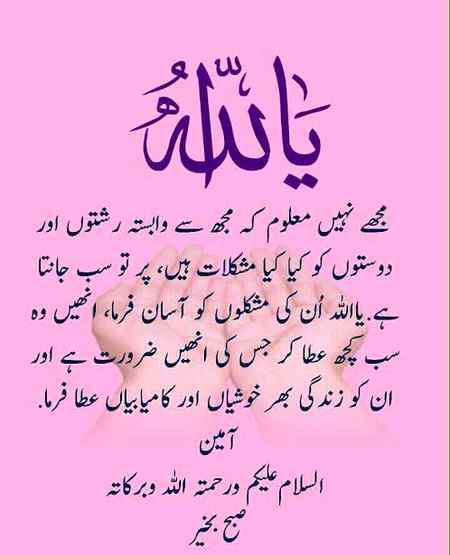 یا اللہ
مجھے نہیں معلوم کہ مجھ سے وابستہ رشتوں اور
دوستوں کو کیا کیا مشکلات ہیں، پر تو سب جانتا
ہے۔یااللہ اُن کی مشکلوں کو آسان فرما، انھیں وہ
سب کچھ عطا کر جس کی انھیں ضرورت ہے اور
ان کو زندگی بھر خوشیاں اور کامیابیاں عطا فرما۔
آمین
السلام علیکم ورحمتہ اللہ وبرکاتہ
صبح بخیر